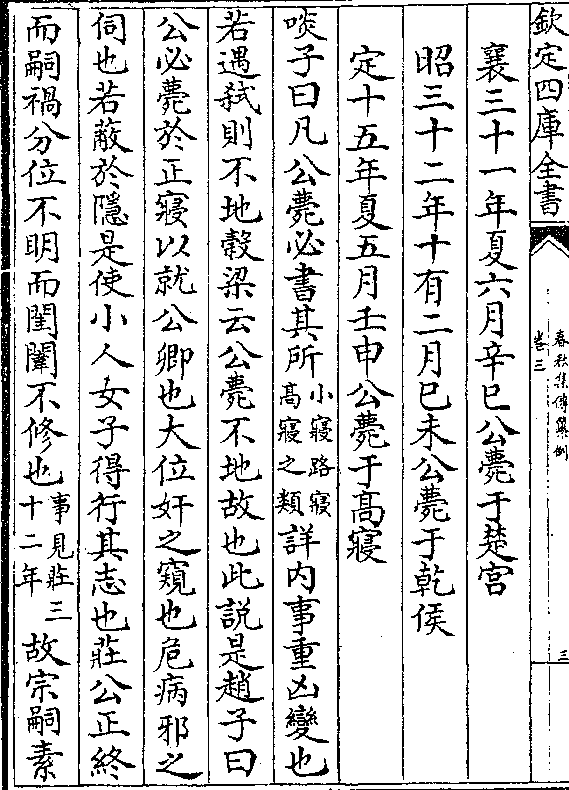 欽定四庫全書
春秋集傳纂例
卷三
三
襄三十一年夏六月辛巳公薨于楚宮
昭三十二年十有二月己未公薨于乾侯
定十五年夏五月壬申公薨于高寢
啖子曰凡公薨必書其所小寢路寢高寢之類詳内事重凶變也
若遇弒則不地榖梁云公薨不地故也此説是趙子曰
公必薨於正寢以就公卿也大位奸之窺也危病邪之
伺也若蔽於隱是使小人女子得行其志也莊公正終
而嗣禍分位不明而閨闈不修也事見莊三十二年故宗嗣素